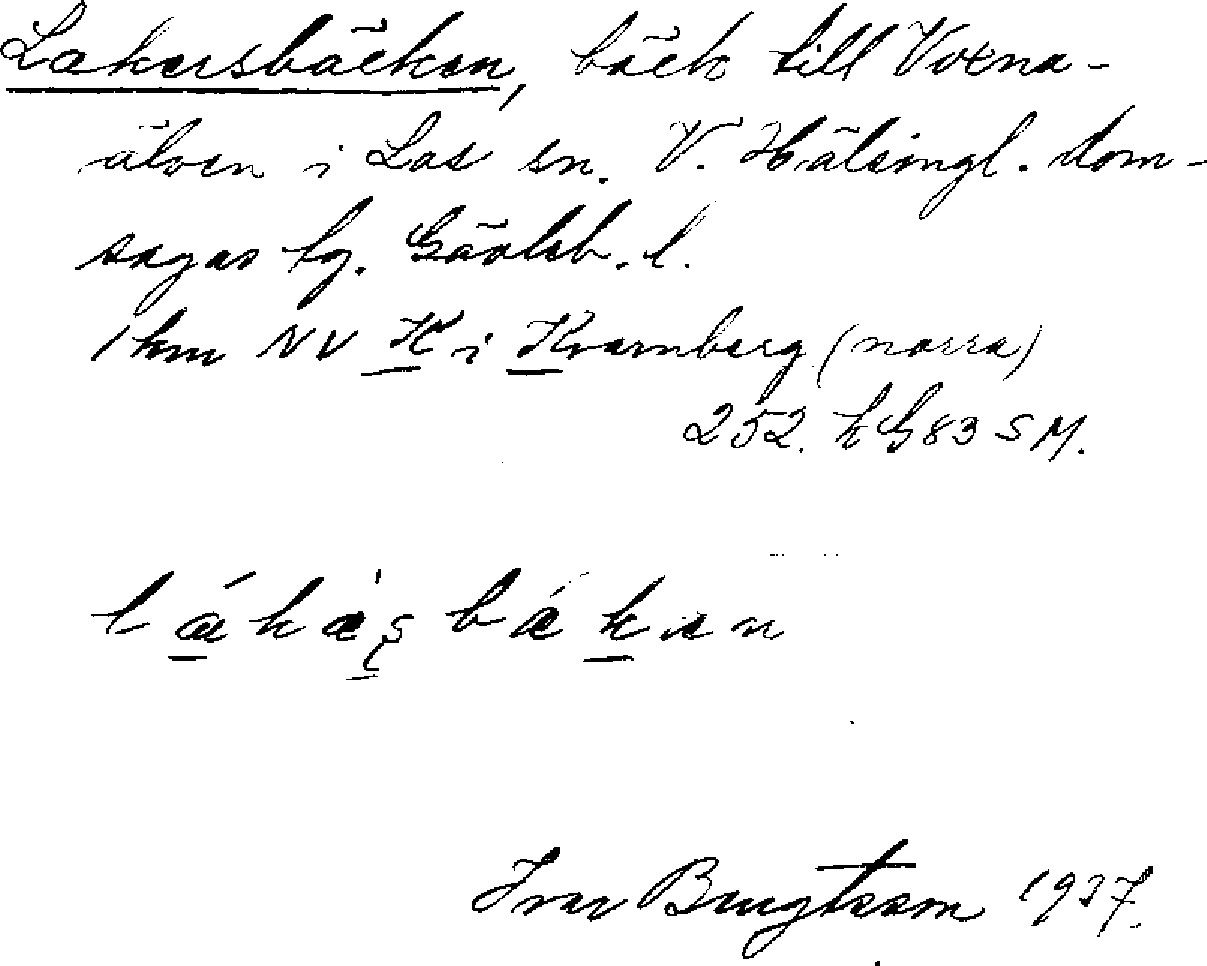 Lakersbäcken, bäck till Voxna-
älven i Los sn. V. Hälsingl. dom-
sagas tg. Gävleb. l.
1 km NV K i Kvarnberg (norra)
252. h G 83 SM.
Ivar Bengtsson 1937.